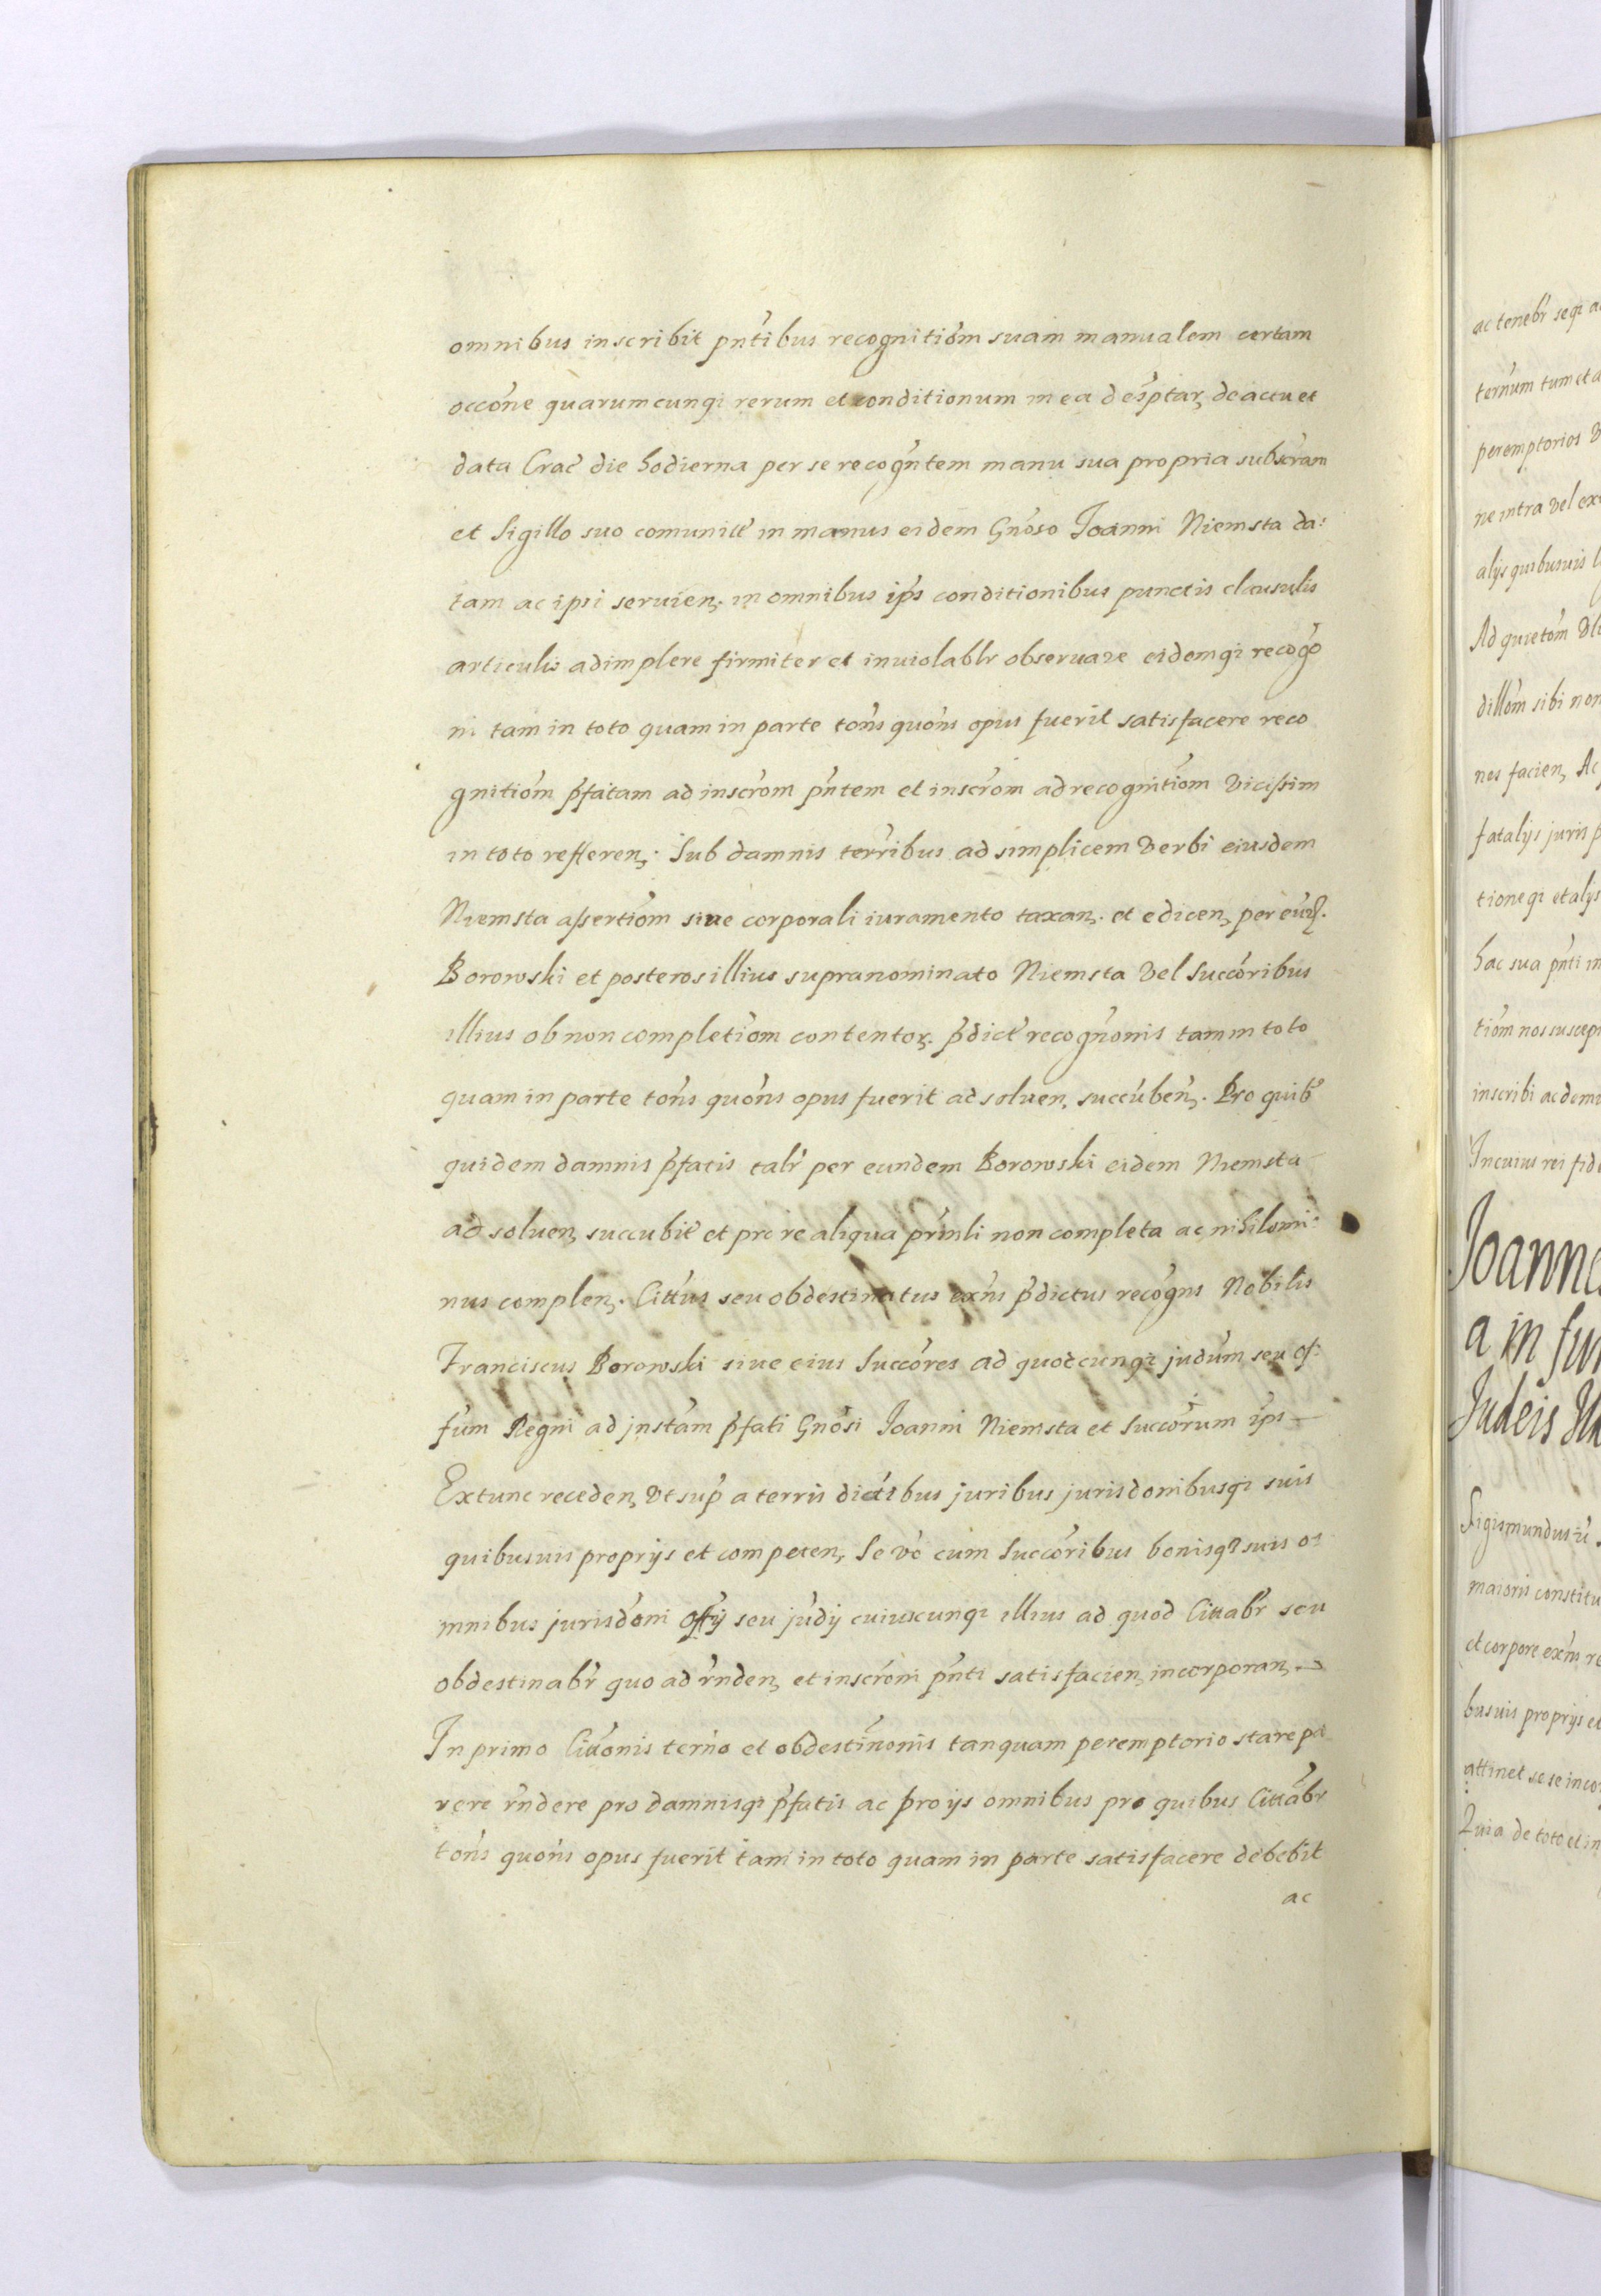 omnibus inscribit pñtibus recognitiõm suam manualem certam
occõne quarumcunqȝ rerum et conditionum in ea desĩptaꝝ de actu et
data Crac̃ die hodierna per se recogñtem manu sua propria subscr̃am
et Sigillo suo comunitt̃ in manus eidem Gñoso Joanni Niemsta da:
tam ac ipsi seruien. in omnibus ip̃s conditionibus punctis clausulis
articulis adimplere firmiter et inuiolablr obseruare eidemqȝ recog̃o
ni tam in toto quam in parte tom̃s quom̃s opus fuerit satisfacere reco
gnitiõm p̃fatam ad inscrõm pñtem et inscrõm ad recognitiõm vicissim
in toto refferen. Sub damnis terr̃ibus ad simplicem verbi eiusdem
Niemsta assertiõm siue corporali iuramento taxan. et edicen, per
Borowski et posteros illius supranominato Niemsta vel Succõribus
illius ob non completiõm contentoꝝ. p̃dict̃ recogñonis tam in toto
quam in parte tom̃s quom̃s opus fuerit ad soluen, succũben. Pro quib̃
quidem damnis p̃fatis talr̃ per eundem Borowski eidem Niemsta
ad soluen, succubit̃ et pro re aliqua pr̃mli non completa ac nihilomi:
nus complen. Citt̃us seu obdestinatus exñs p̃dictus recog̃ns Nobilis
Franciscus Borowski siue eius Succõres ad quodcunqȝ jud̃um seu of:
f̃um Regni ad jnst̃am p̃fati Gñosi Joanni Niemsta et Succõrum ip̃s
Extunc receden, vt sup̃ a terris dict̃ibus juribus jurisdonibusqȝ suis
quibusuis proprijs et competen, Se võ cum Succõribus bonisqȝ suis o:
mnibus jurisdõni off̃ij seu jud̃ij cuiuscunqȝ illius ad quod Cittabr̃ seu
obdestinabr̃ quo ad r̃nden, et inscrõni pñti satisfacien, incorporan.
In primo Cittõnis terño et obdestinõnis tanquam peremptorio stare pa
rere r̃ndere pro damnisqȝ p̃fatis ac pro ijs omnibus pro quibus Citt̃abr
tom̃s quom̃s opus fuerit tam in toto quam in parte satisfacere debebit
ac
ac tenebr̃ seqȝ
terñum tum
peremptorios
ne intra vel
alijs quibusuis
Ad quietõm
dillõm sibi non
nes facien, Ac
fatalijs juris
tioneqȝ et alijs
hac sua pñti in
tiõm nos
inscribi ac
In cuius rei
Joanne
a in
Judeis
Sigismundus
maioris
et corpore exñs
busuis proprijs et
attinet se se
Quia de toto et in